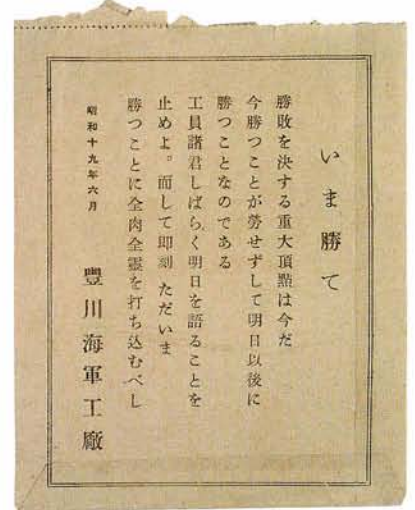 いま勝て
勝敗を決する重大頂點は今だ
今勝つことが勞せずして明日以後に
勝つことなのである
工員諸君しばらく明日を語ることを
止めよ。而して即刻 ただいま
勝つことに全肉全靈を打ち込むべし
昭和十九年六月
豐川海軍工廠